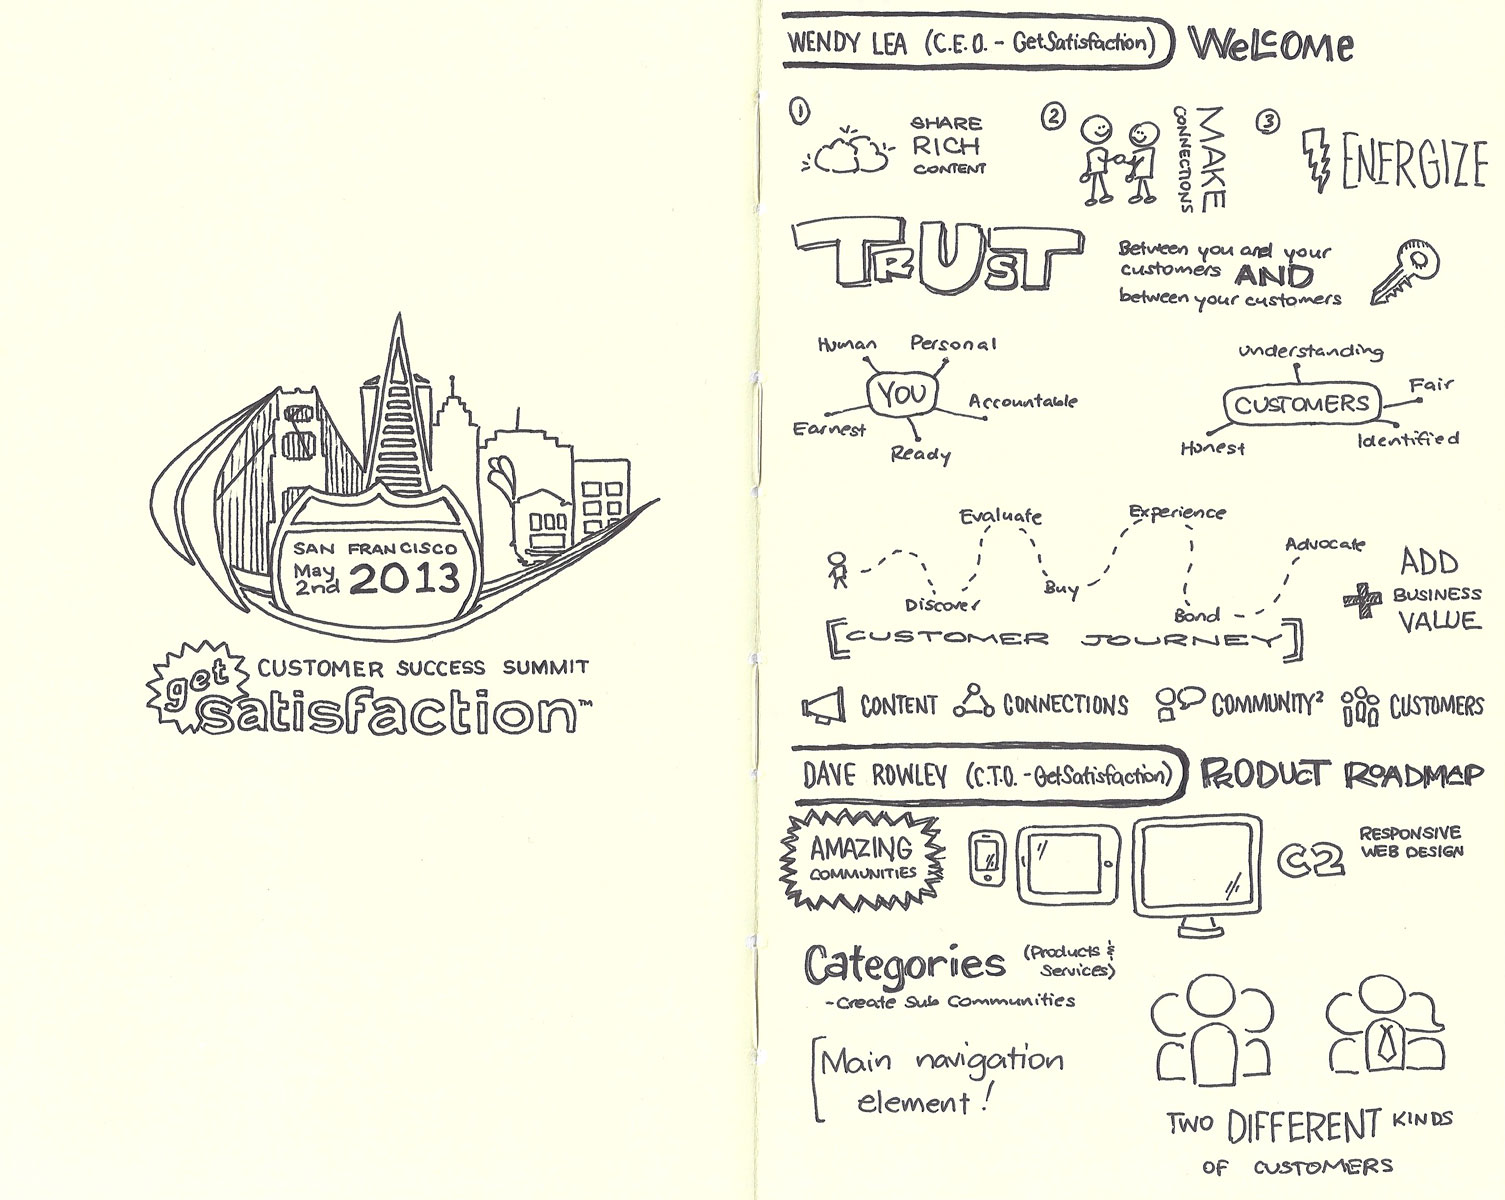 SAN FRANCISCO
May 2nd 2013
CUSTOMER SUCCESS SUMMIT
get
satisfaction™
WENDY LEA (C.E.O. - GetSatisfaction) WELCOME
1
SHARE
RICH
CONTENT
2
MAKE
CONNECTIONS
3
ENERGIZE
TRUST
Between you and your
customers AND
between your customers
Human
Personal
YOU
Accountable
Earnest
Ready
Understanding
Fair
CUSTOMERS
Identified
Honest
Evaluate
Experience
Advocate
Discover
Buy
Bond
[CUSTOMER JOURNEY]
+ ADD
BUSINESS
VALUE
CONTENT CONNECTIONS COMMUNITY² CUSTOMERS
DAVE ROWLEY (C.T.O. - GetSatisfaction) PRODUCT ROADMAP
AMAZING
COMMUNITIES
C2
RESPONSIVE
WEB DESIGN
Categories (Products &
Services)
- Create Sub Communities
[Main navigation
element!
TWO DIFFERENT KINDS
OF CUSTOMERS